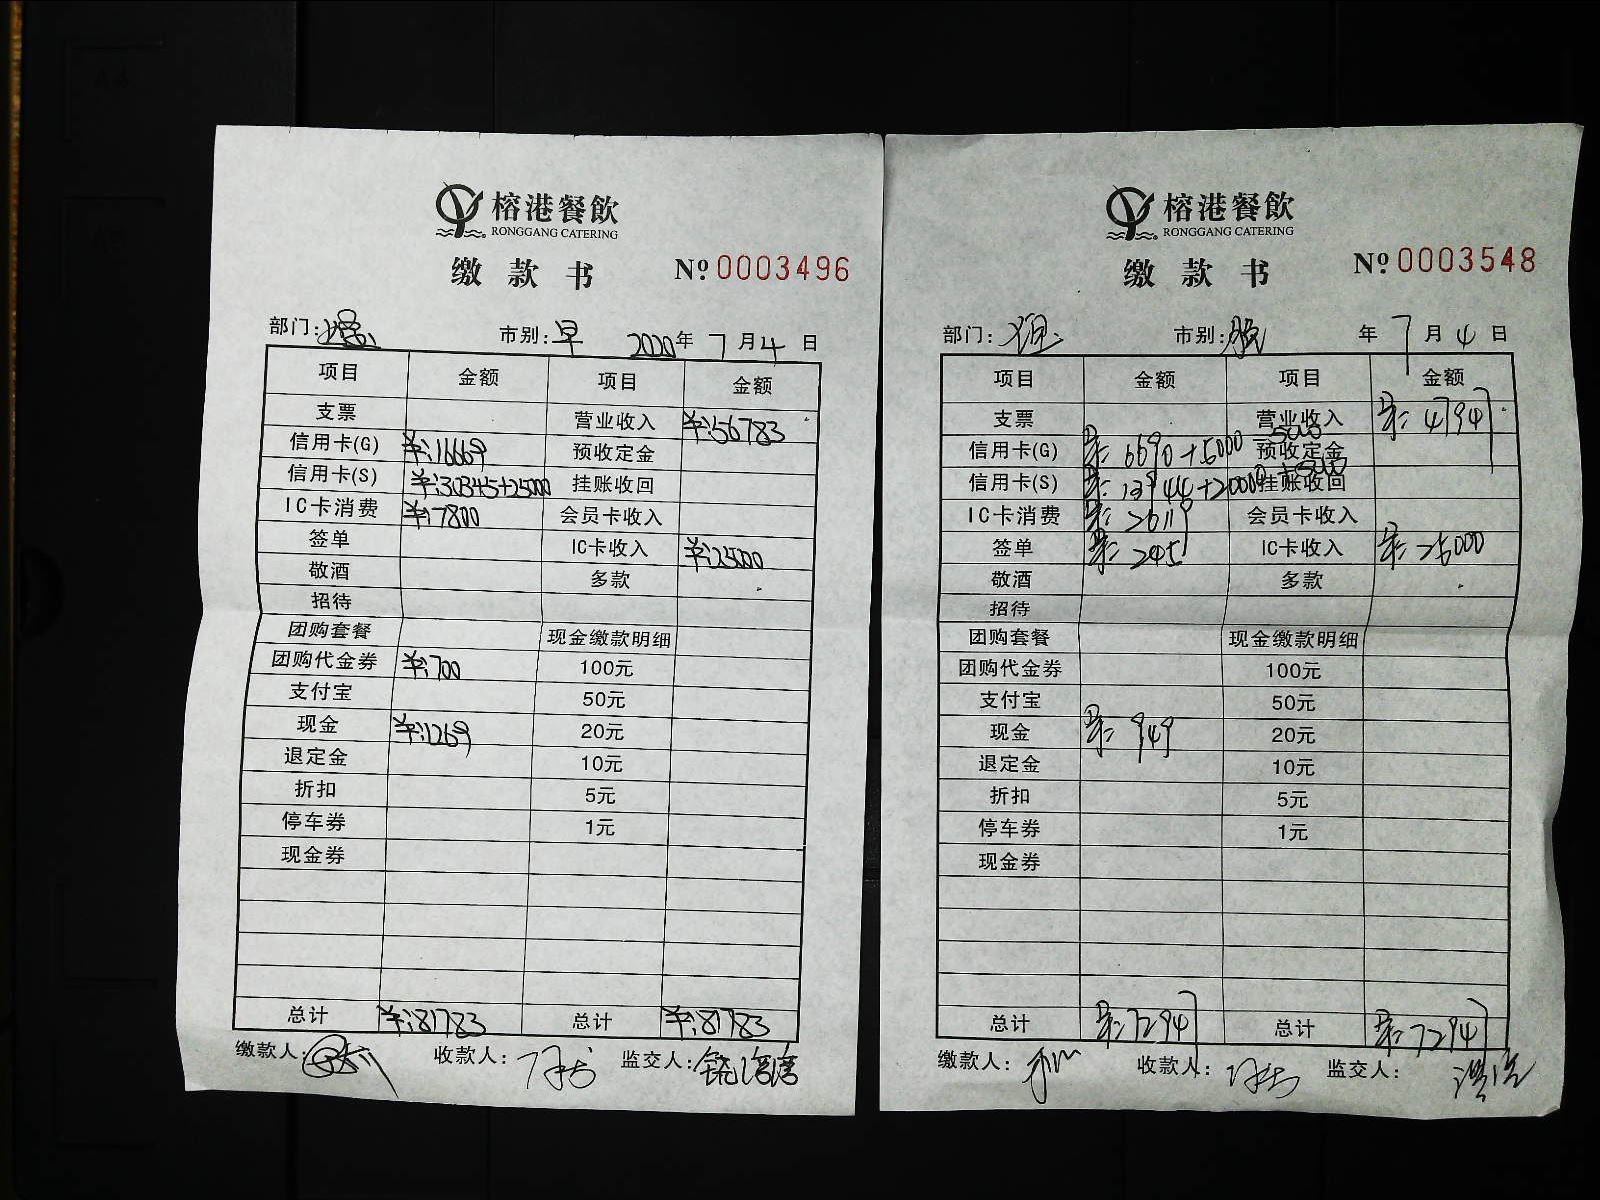 榕港餐飲
RONGGANG CATERING
缴款书 № 0003496
部门: 市别:早 2020年 7月4日
项目 金额 项目 金额
支票 营业收入 ¥:56783
信用卡(G) ¥:16669 预收定金
信用卡(S) ¥:30345+25000 挂账收回
IC卡消费 ¥:7800 会员卡收入
签单 IC卡收入 ¥:25000
敬酒 多款
招待
团购套餐 现金缴款明细
团购代金券 ¥:700 100元
支付宝 50元
现金 ¥:1269 20元
退定金 10元
折扣 5元
停车券 1元
现金券
总计 ¥:81783 总计 ¥:81783
缴款人: 收款人: 监交人:
榕港餐飲
RONGGANG CATERING
缴款书 № 0003548
部门: 市别: 年 7月4日
项目 金额 项目 金额
支票 营业收入 ¥: 47947
信用卡(G) ¥: 6690+5000 预收定金
信用卡(S) 挂账收回
IC卡消费 ¥: 2619 会员卡收入
签单 ¥: 245 IC卡收入 ¥: 25000
敬酒 多款
招待
团购套餐 现金缴款明细
团购代金券 100元
支付宝 50元
现金 ¥: 949 20元
退定金 10元
折扣 5元
停车券 1元
现金券
总计 ¥:72947 总计 ¥:72947
缴款人: 收款人: 监交人: